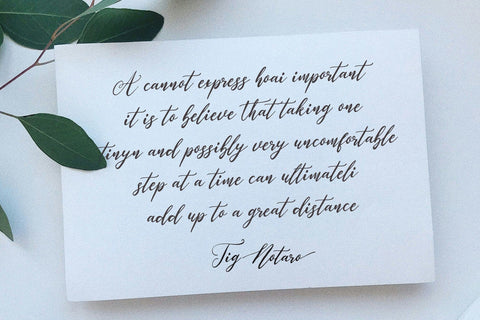 A cannot express hoai important
it is to believe that taking one
tinyn and possibly very uncomfortable
step at a time can ultimateli
add up to a great distance
Tig Notaro